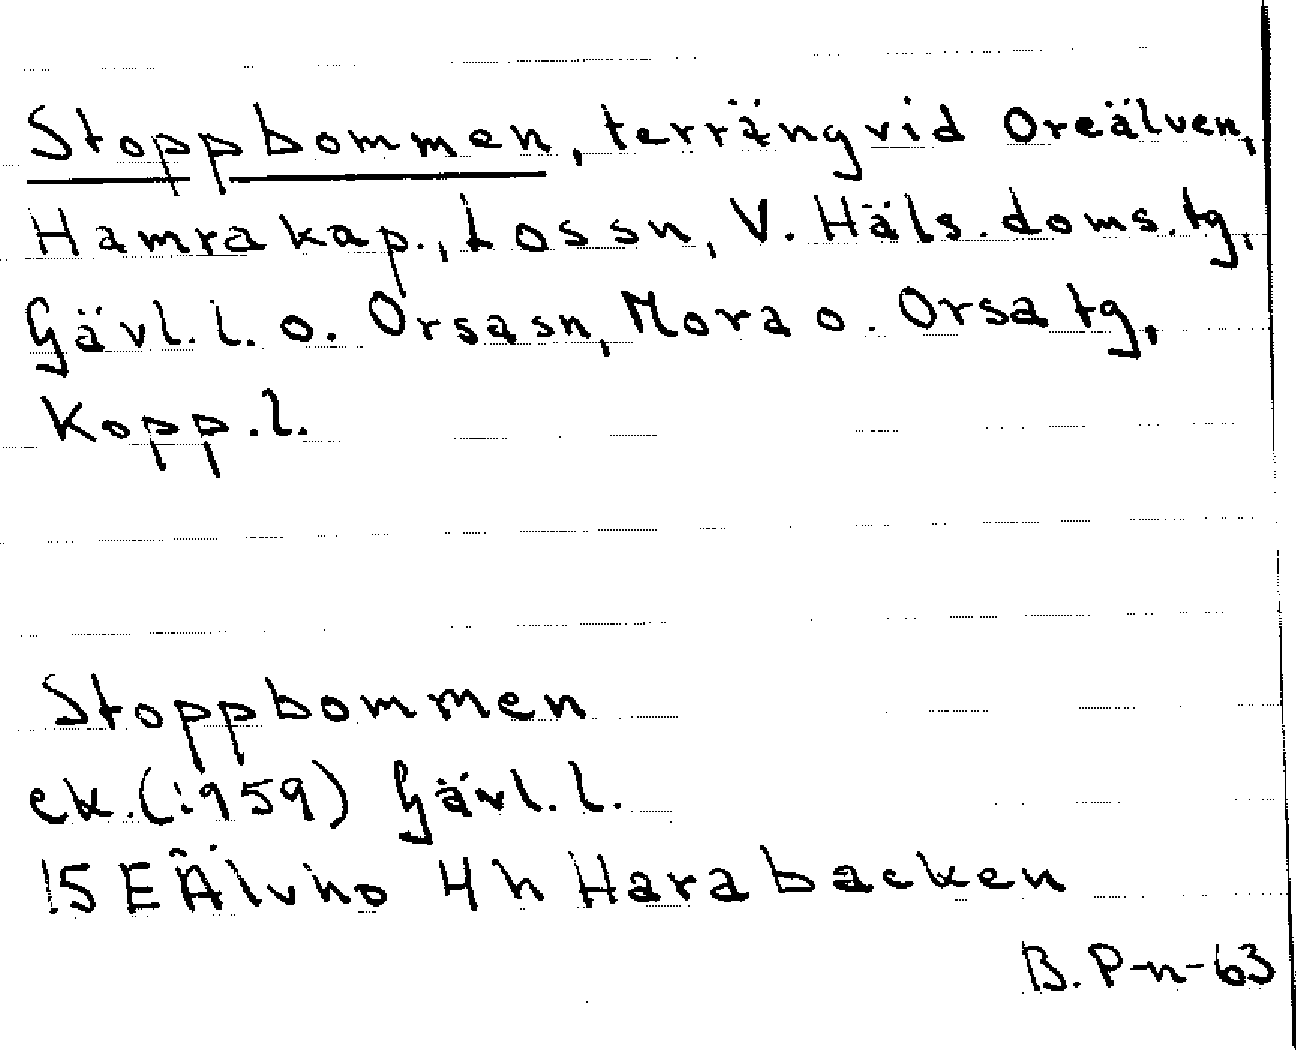 Stoppbommen, terräng vid Oreälven,
Hamra kap., Los sn, V. Häls. doms. tg,
Gävl. l. o. Orsa sn, Mora o. Orsa tg,
Kopp. l.
Stoppbommen
ek. (1959) Gävl. l.
15 E Älvho 4 h Harabacken
B. P-n-63